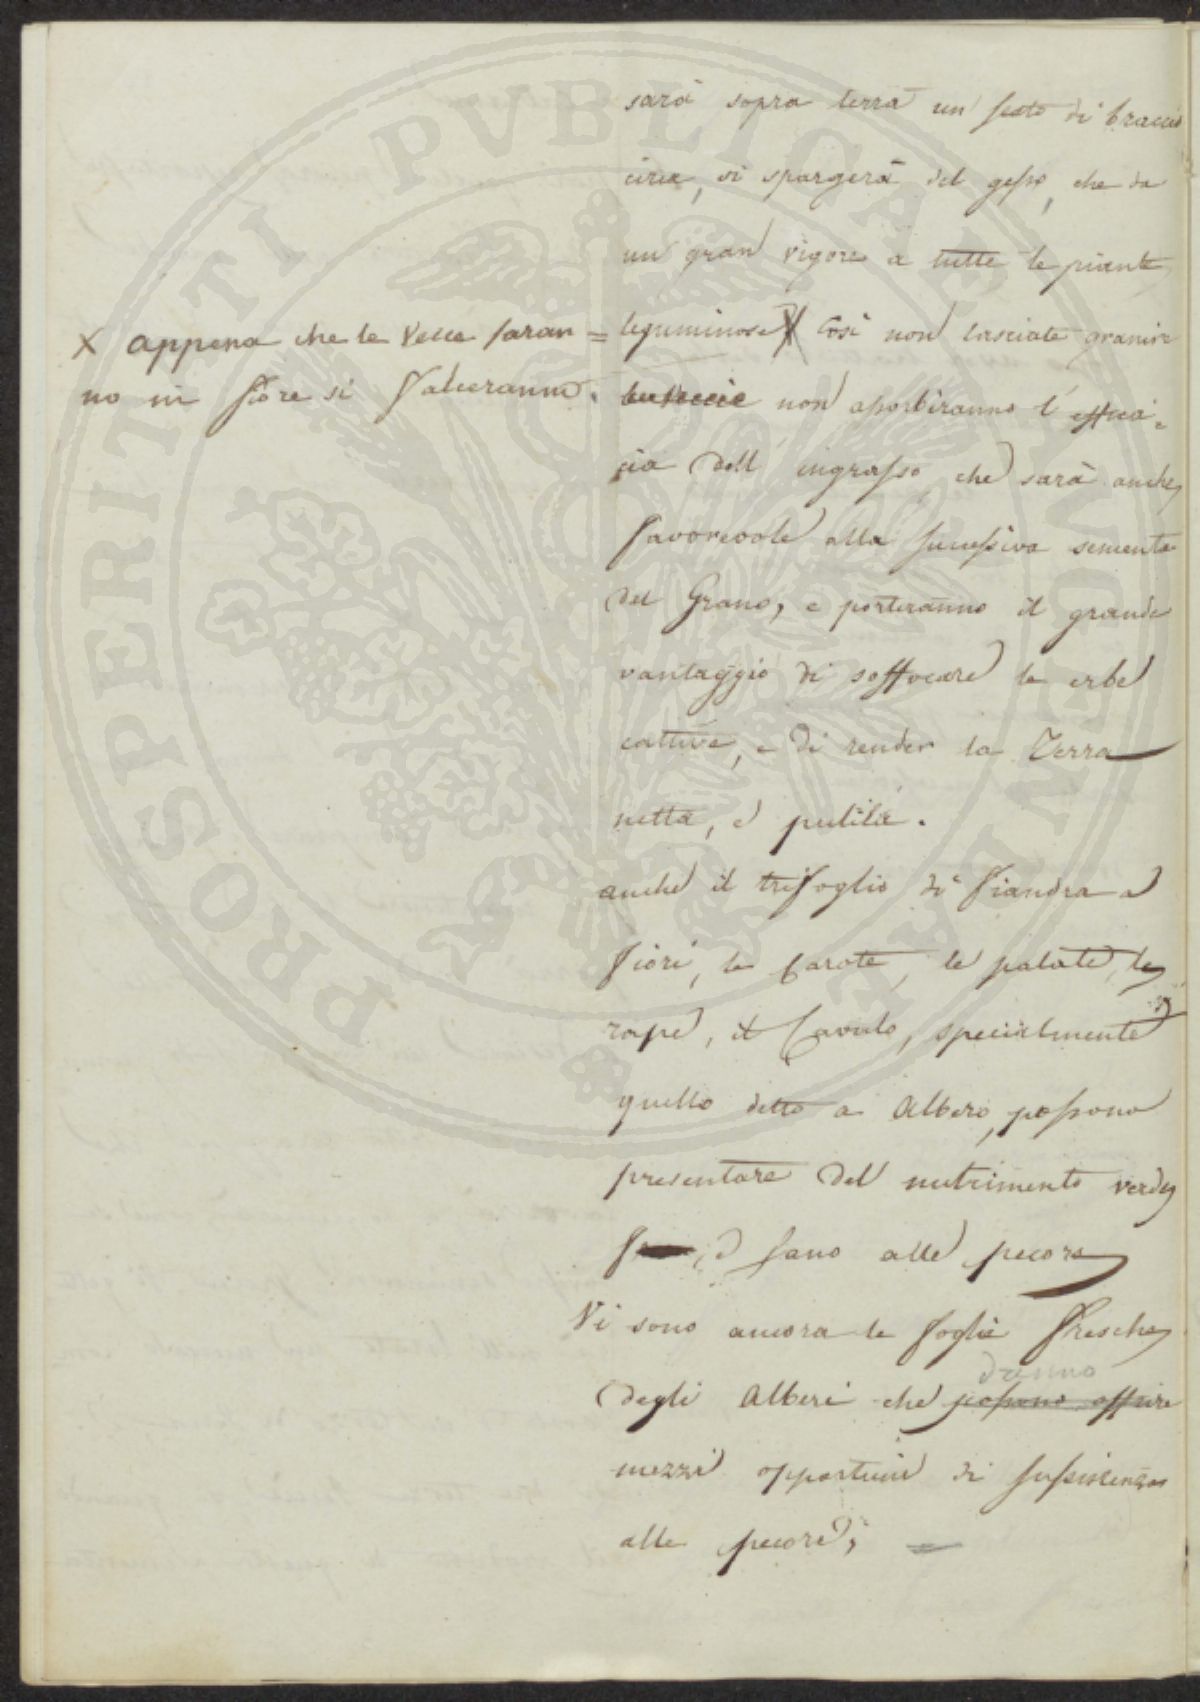 sarà sopra terra un sesto di braccio
circa, si spargerà del gesso, che da
un gran vigore a tutte le piante
leguminose X Così non lasciate granire
X appena che le Vecce saran=
no in fiore si falceranno.
le Veccie non assorbiranno l'effica=
cia dell' ingrasso, che sarà anche
favorevole alla successiva sementa
del Grano, e porteranno il grande
vantaggio di soffocare le erbe
cattive, e di render la Terra
netta, e pulita.
anche il trifoglio di Fiandra a
fiori, le Carote, le patate, le
rape, il Cavolo, specialmente
quello detto a Albero, possono
presentare del nutrimento verde
e sano alle pecore
Vi sono ancora le foglie fresche
danno
degli Alberi che possono offrire
mezzi opportuni di sussistenza
alle pecore;
PROSPERITATI PVBLICAE AVGENDAE